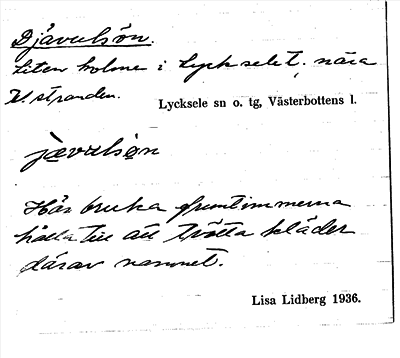 Djävulsön.
Liten holme i Lyckselet, nära
N. stranden.
Lycksele sn o. tg, Västerbottens l.
Här bruka fruntimmerna
hålla till att tvätta kläder
därav namnet.
Lisa Lidberg 1936.